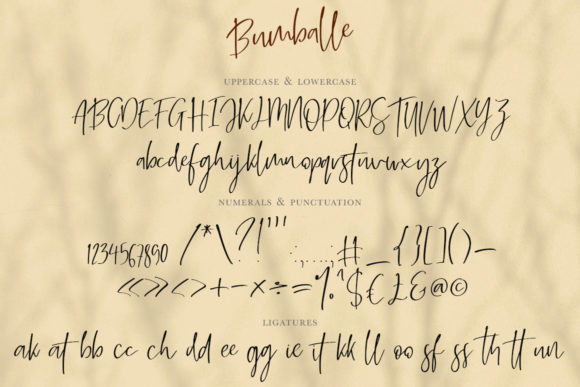 Bumballe
UPPERCASE & LOWERCASE
ABCDEFGHIJKLMNOPQRSTUVWXYZ
abcdefghijklmnopqrstuvwxyz
NUMERALS & PUNCTUATION
1234567890 /*\?!''' :,...;#_{}[]()-
«»<>+-×÷=%^$€£&@©
LIGATURES
ak at bb cc ch dd ee gg ie it kk ll oo sf ss th tt un